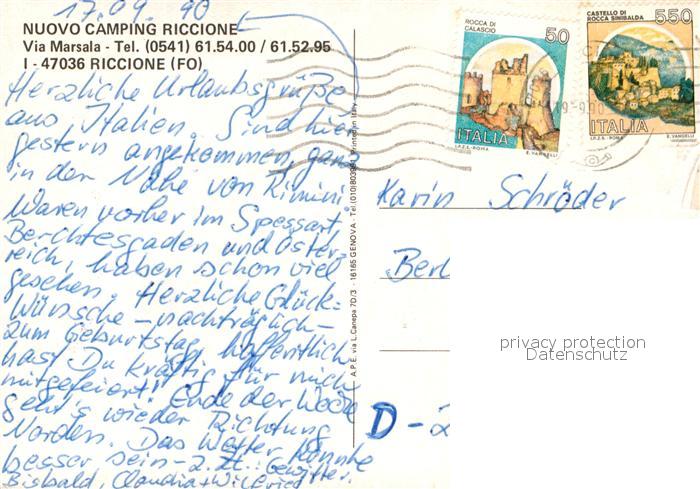 17.09.90
NUOVO CAMPING RICCIONE
Via Marsala - Tel. (0541) 61.54.00 / 61.52.95
I - 47036 RICCIONE (FO)
Herzliche Urlaubsgrüße
aus Italien. Sind hier
gestern angekommen, ganz
in der Nähe von Rimini
Waren vorher im Spessart,
Berchtesgaden und Öster-
reich, haben schon viel
gesehen. Herzliche Glück-
Wünsche - nachträglich -
zum Geburtstag, hoffentlich
hast Du kräftig für mich
mitgefeiert! Ende der Woche
geht's wieder Richtung
Norden. Das Wetter könnte
besser sein - z. Zt.: Gewitter.
Bisbald, Claudia + Wilfried
A.P.E. via L. Canepa 7D/3 - 16165 GENOVA - Tel. (010) Printed in Italy
ROCCA DI
CALASCIO
50
ITALIA
I.P.Z.S. - ROMA E. VANGELLI
CASTELLO DI
ROCCA SINIBALDA
550
ITALIA
I.P.Z.S. - ROMA E. VANGELLI
Karin Schröder
Berl
D-2
privacy protection
Datenschutz